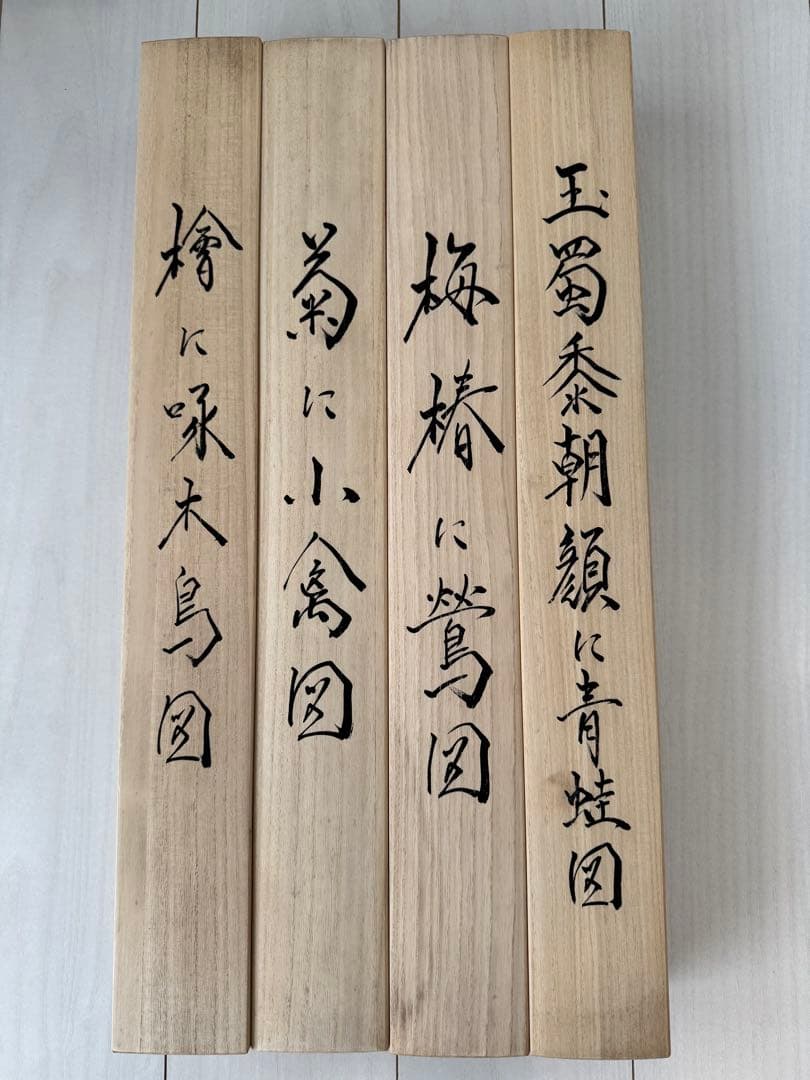 玉蜀黍朝顔に青蛙図
梅椿に鶯図
菊に小禽図
檜に啄木鳥図